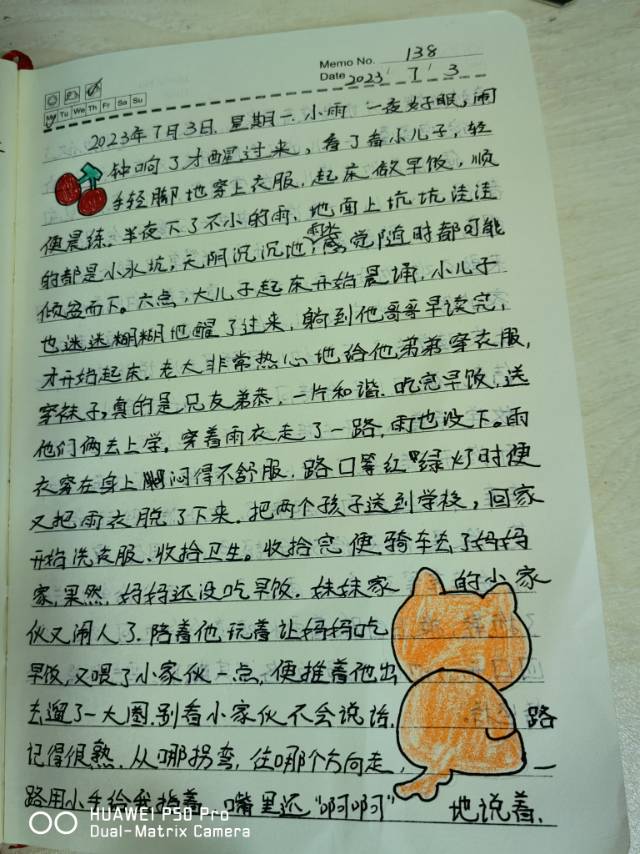 Memo No. 138
Date 2023 / 7 / 3
Mo Tu We Th Fr Sa Su
2023年7月3日. 星期一. 小雨 一夜好眠, 闹
钟响了才醒过来, 看了看小儿子, 轻
手轻脚地穿上衣服, 起床做早饭, 顺
便晨练. 半夜下了不小的雨, 地面上坑坑洼洼
的都是小水坑, 天阴沉沉地, 雨水感觉随时都可能
倾盆而下。六点, 大儿子起床开始晨诵, 小儿子
也迷迷糊糊地醒了过来, 躺到他哥哥早读完,
才开始起床. 老大非常热心地给他弟弟穿衣服,
穿袜子, 真的是兄友弟恭, 一片和谐. 吃完早饭, 送
他们俩去上学. 穿着雨衣走了一路, 雨也没下。雨
衣穿在身上闷得不舒服. 路口等红绿灯时便
又把雨衣脱了下来. 把两个孩子送到学校, 回家
开始洗衣服、收拾卫生。收拾完便骑车去了妈妈
家, 果然, 妈妈还没吃早饭. 妹妹家的小家
伙又闹人了. 陪着他玩着让妈妈吃
早饭, 又喂了小家伙一点, 便推着他出
去遛了一大圈. 别看小家伙不会说话, 路
记得很熟. 从哪拐弯, 往哪个方向走, 一
路用小手给我指着, 嘴里还“啊啊”地说着.
HUAWEI P50 Pro
Dual-Matrix Camera